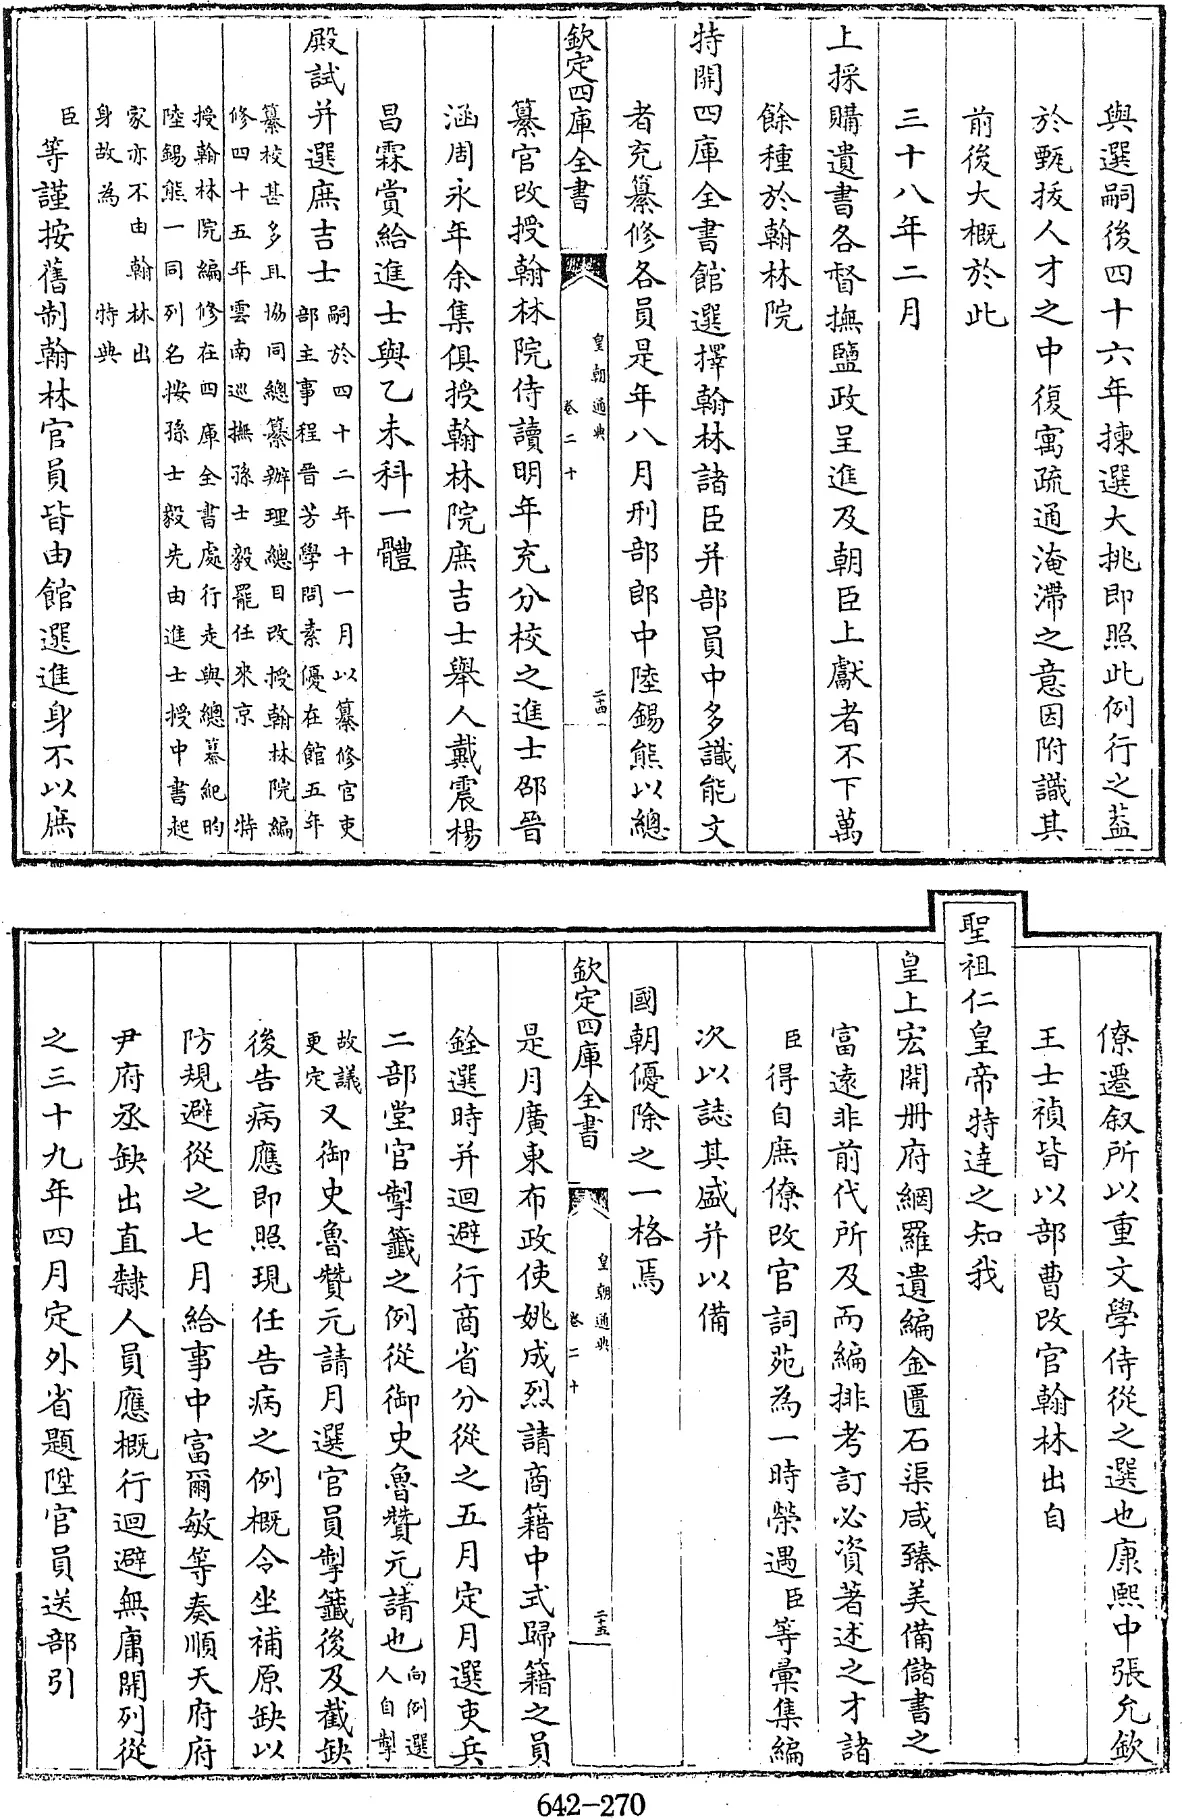 與選嗣後四十六年揀選大挑即照此例行之葢
於甄拔人才之中復寓疏通淹滯之意因附識其
前後大概於此
三十八年二月
上採購遺書各督撫鹽政呈進及朝臣上獻者不下萬
餘種於翰林院
特開四庫全書館選擇翰林諸臣并部員中多識能文
者充纂修各員是年八月刑部郎中陸錫熊以總
欽定四庫全書
皇朝通典
卷二十
二十四
纂官改授翰林院侍讀明年充分校之進士邵晉
涵周永年余集俱授翰林院庶吉士舉人戴震楊
昌霖賞給進士與乙未科一體
殿試并選庶吉士
嗣於四十二年十一月以纂修官吏
部主事程晉芳學問素優在館五年
纂校甚多且協同總纂辦理總目改授翰林院編
修四十五年雲南巡撫孫士毅罷任來京 特
授翰林院編修在四庫全書處行走與總纂紀昀
陸錫熊一同列名按孫士毅先由進士授中書起
家亦不由翰林出
身故為 特典
臣等謹按舊制翰林官員皆由館選進身不以庶
僚遷叙所以重文學侍從之選也康熙中張允欽
王士禎皆以部曹改官翰林出自
聖祖仁皇帝特達之知我
皇上宏開冊府網羅遺編金匱石渠咸臻美備儲書之
富遠非前代所及而編排考訂必資著述之才諸
臣得自庶僚改官詞苑為一時榮遇臣等彙集編
次以誌其盛并以備
國朝優除之一格焉
欽定四庫全書
皇朝通典
卷二十
二十五
是月廣東布政使姚成烈請商籍中式歸籍之員
銓選時并迴避行商省分從之五月定月選吏兵
二部堂官掣籤之例從御史魯贊元請也
向例選
人自掣
故議
更定
又御史魯贊元請月選官員掣籤後及截缺
後告病應即照現任告病之例概令坐補原缺以
防規避從之七月給事中富爾敏等奏順天府府
尹府丞缺出直隸人員應概行迴避無庸開列從
之三十九年四月定外省題陞官員送部引
642-270